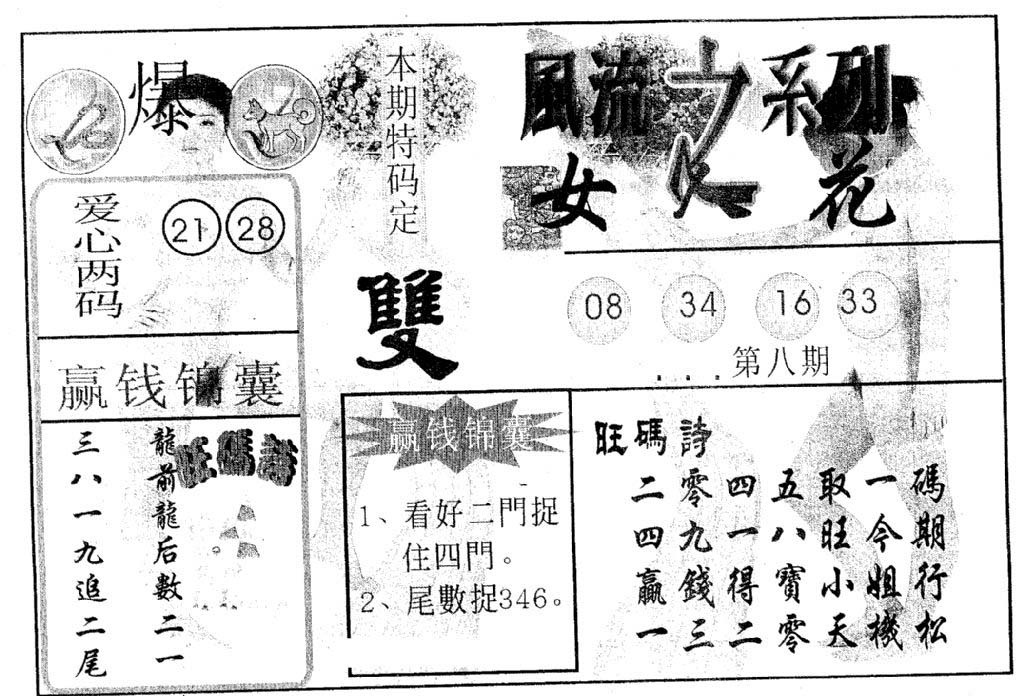 爆
本期特码定
雙
風流之系列
女人花
爱心两码
21 28
08 34 16 33
第八期
赢钱锦囊
旺碼詩
龍前龍后數二一
三八一九追二尾
赢钱锦囊
1、看好二門捉
住四門。
2、尾數捉346。
旺碼詩
二零四五取一碼
四九一八旺今期
贏錢得寶小姐行
一三二零天機松